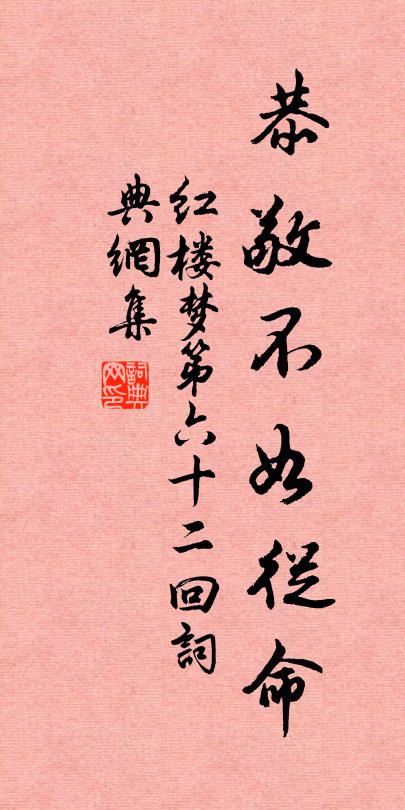 恭敬不如從命
红楼梦第六十二回詞
典網集
詞典網印